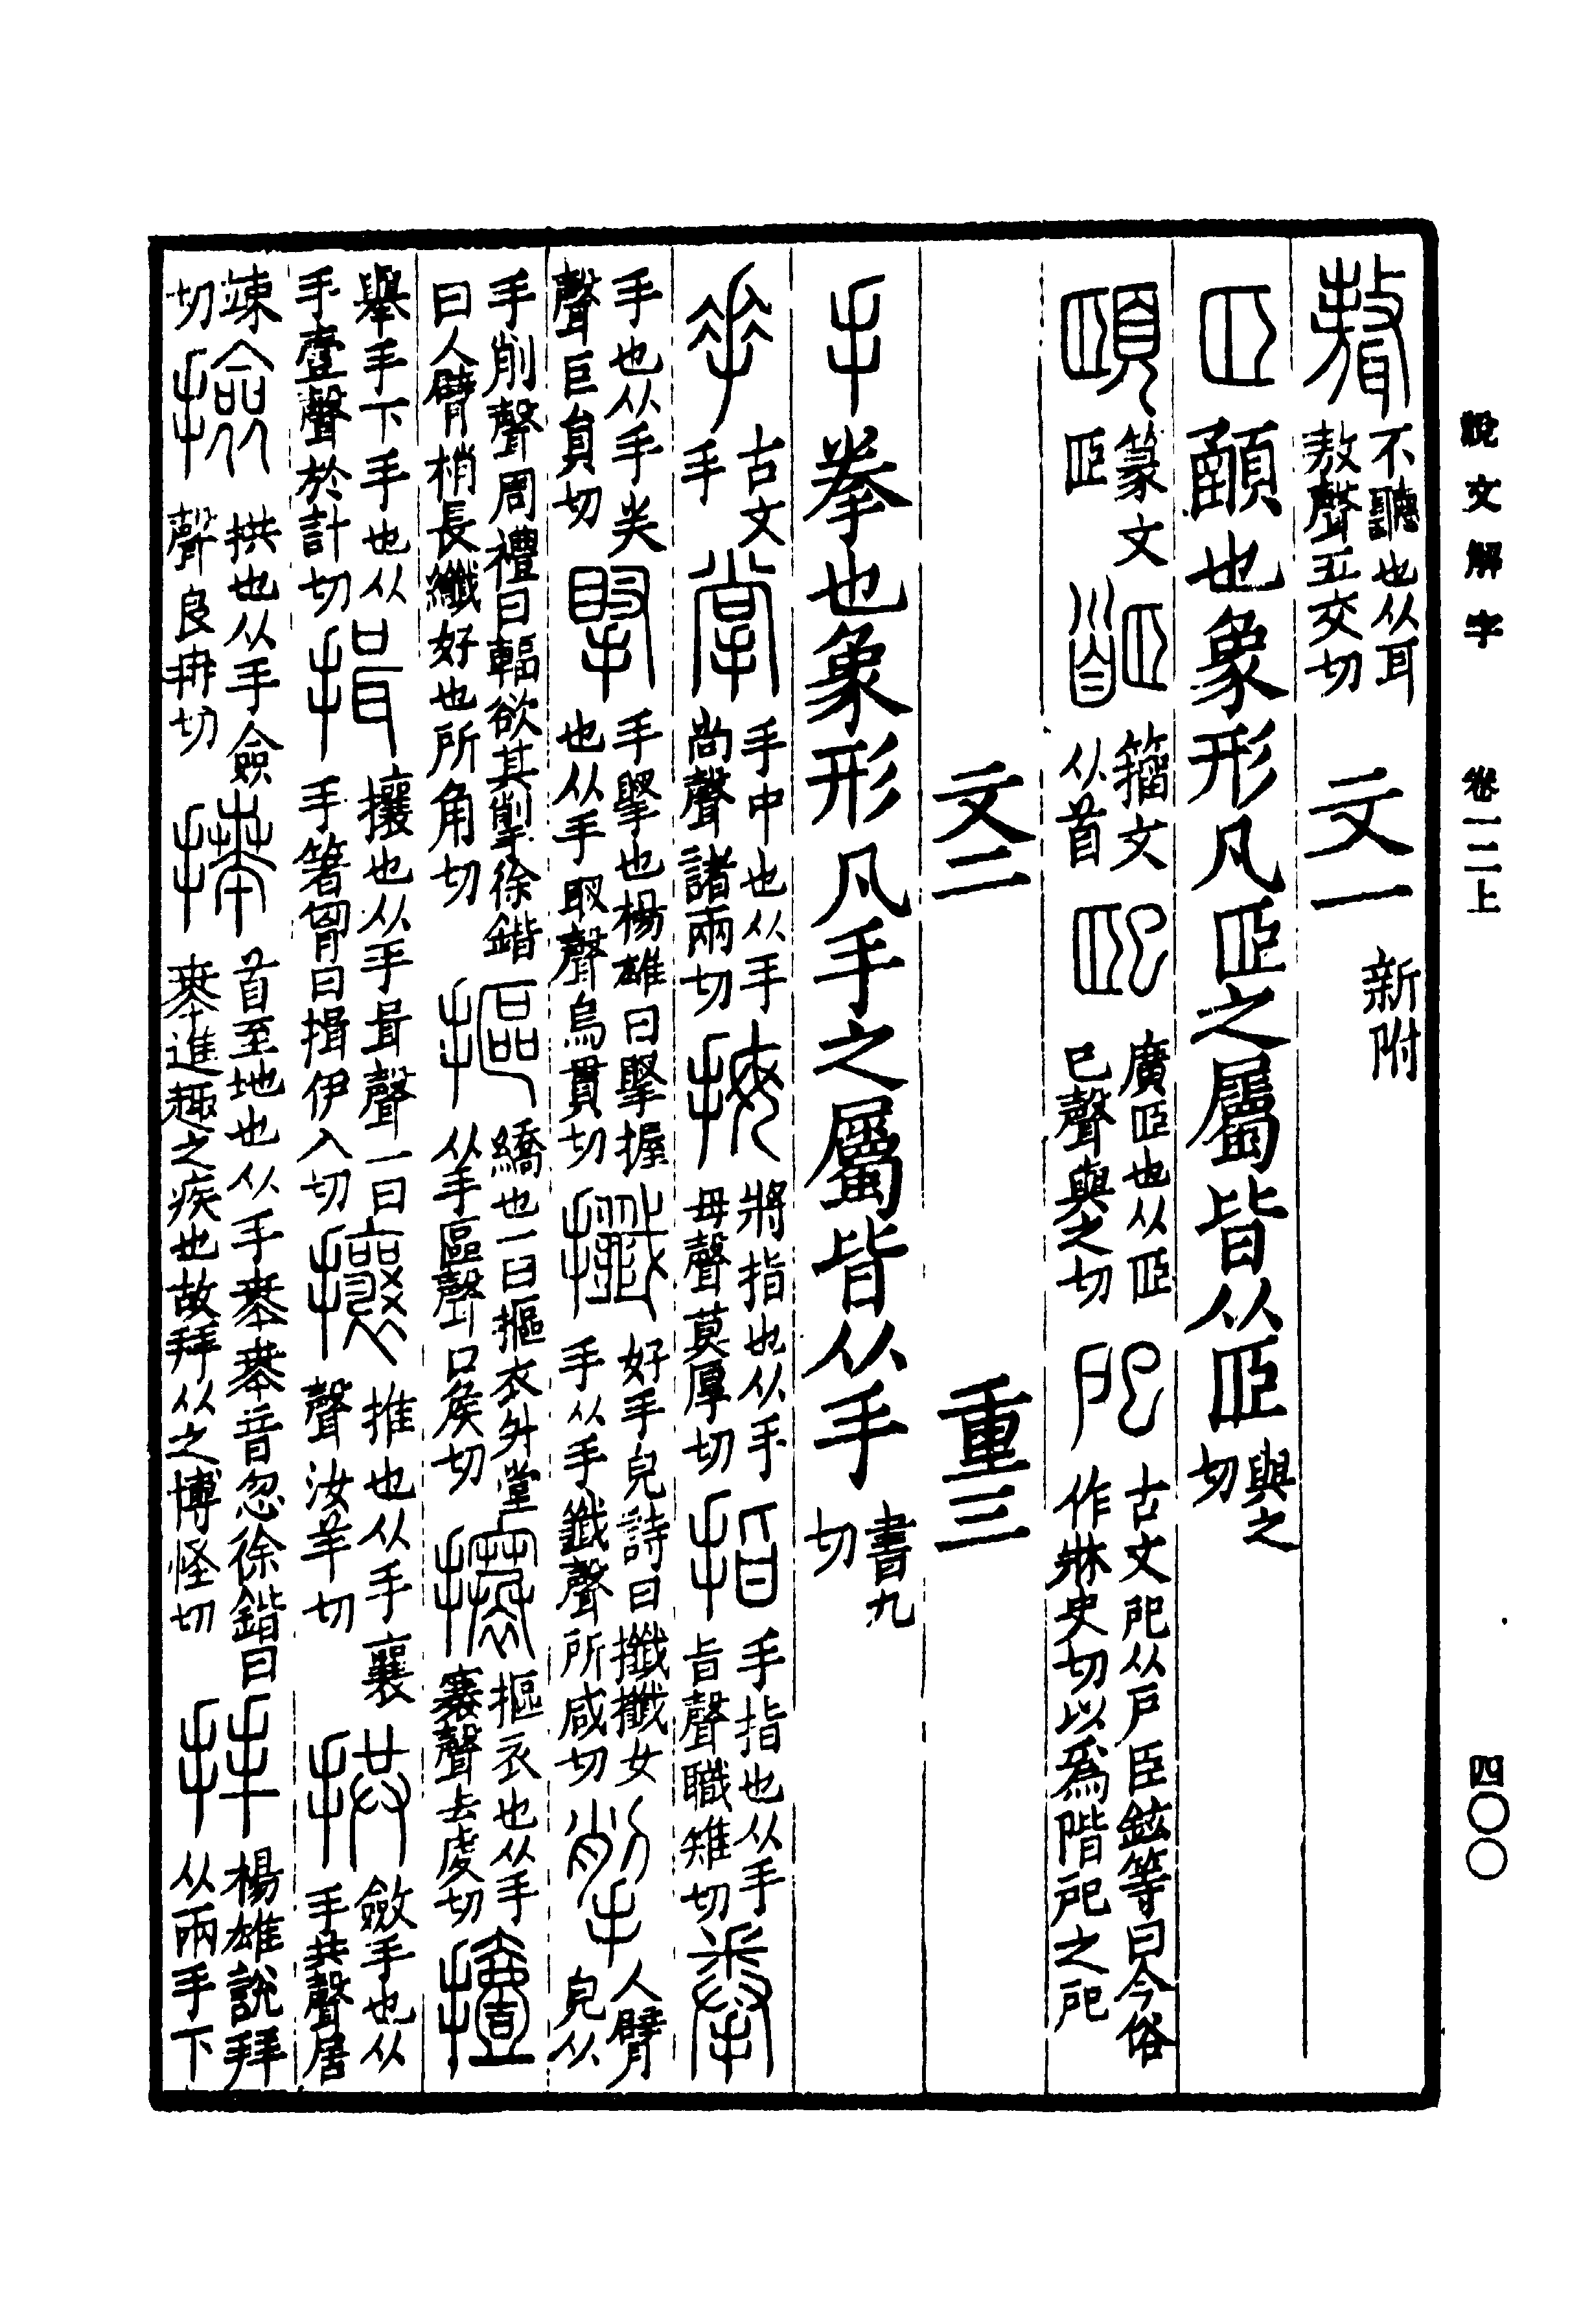 說文解字　卷一二上　四〇〇
聱 不聽也从耳敖聲五交切 文一 新附
𦣝 顄也象形凡𦣝之屬皆从𦣝 與之切
頤 篆文𦣝 𩠡 籒文从首 巸 廣𦣝也从𦣝巳聲與之切 𢨪 古文巸从戶臣鉉等曰今俗作牀史切以爲階戺之戺
文二　重三
手 拳也象形凡手之屬皆从手 書九切
𠂿 古文手 掌 手中也从手尚聲諸兩切 拇 將指也从手母聲莫厚切 指 手指也从手旨聲職雉切 拳
手也从手𢍏聲巨員切 掔 手掔也楊雄曰掔握也从手䝨聲烏貫切 攕 好手皃詩曰攕攕女手从手韱聲所咸切 掣 人臂皃从
手削聲周禮曰輻欲其掣徐鍇曰人臂梢長纖好也所角切 摳 繑也一曰摳衣升堂从手區聲口矦切 攐 摳衣也从手褰聲去虔切 㩘
舉手下手也从手壹聲於計切 揖 攘也从手咠聲一曰手箸胷曰揖伊入切 攘 推也从手襄聲汝羊切 拱 斂手也从手共聲居
竦切 撿 拱也从手僉聲良冉切 𢷎 首至地也从手𠦪𠦪音忽徐鍇曰𠦪進趣之疾也故拜从之博怪切 拜 楊雄說拜从兩手下